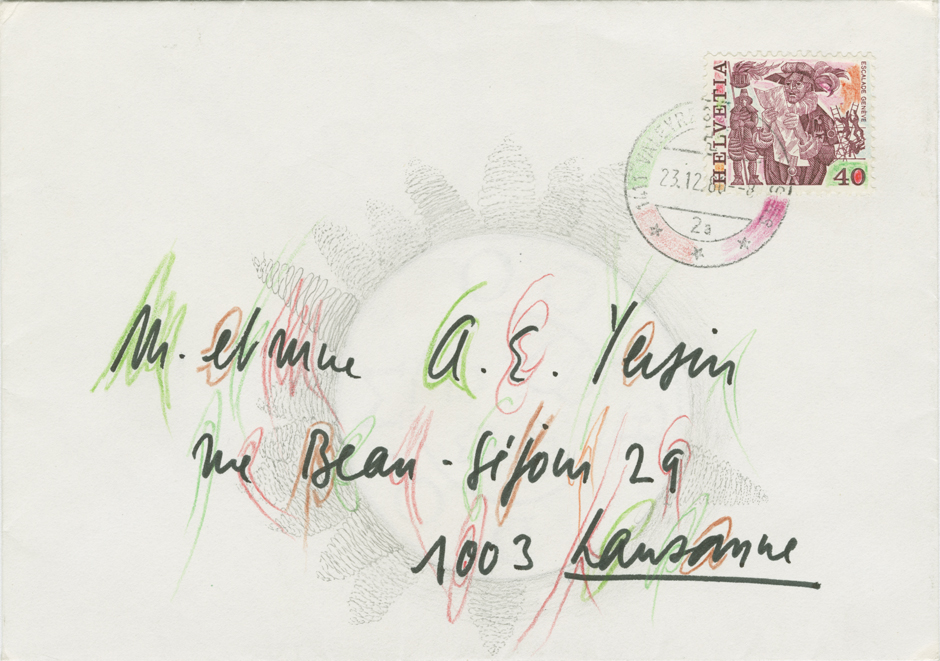 HELVETIA
ESCALADE GENÈVE
40
23.12.8
2a
M. et Mme A. E. Yersin
rue Beau-Séjour 29
1003 Lausanne